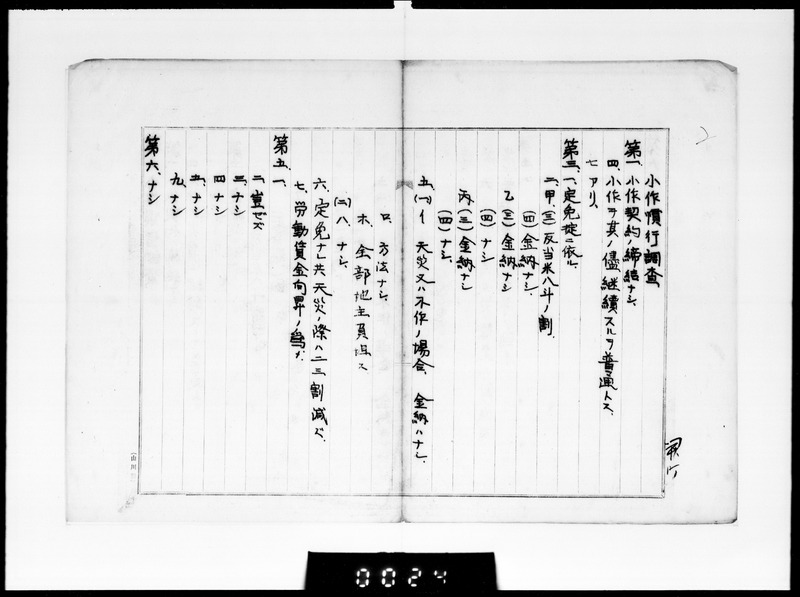 小作慣行調査
第一、小作契約ノ締結ナシ
四、小作ヲ其ノ儘継続スルヲ普通トス
七、アリ
第三、一、定免掟ニ依ル
二、甲、(三)反当米八斗ノ割
(四)金納ナシ
乙(三)金納ナシ
(四)ナシ
丙、(三)金納ナシ
(四)ナシ
五、(一)イ 天災又ハ不作ノ場合、金納ハナシ
ロ、方法ナシ
ホ、全部地主負担ス
(二)ハ、ナシ
六、定免ナレ共天災ノ際ハ二、三割減ズ
七、労動賃金向昇ノ為メ
第五、一、
二、豈ゼズ
三、ナシ
四、ナシ
五、ナシ
九、ナシ
第六、ナシ
0024